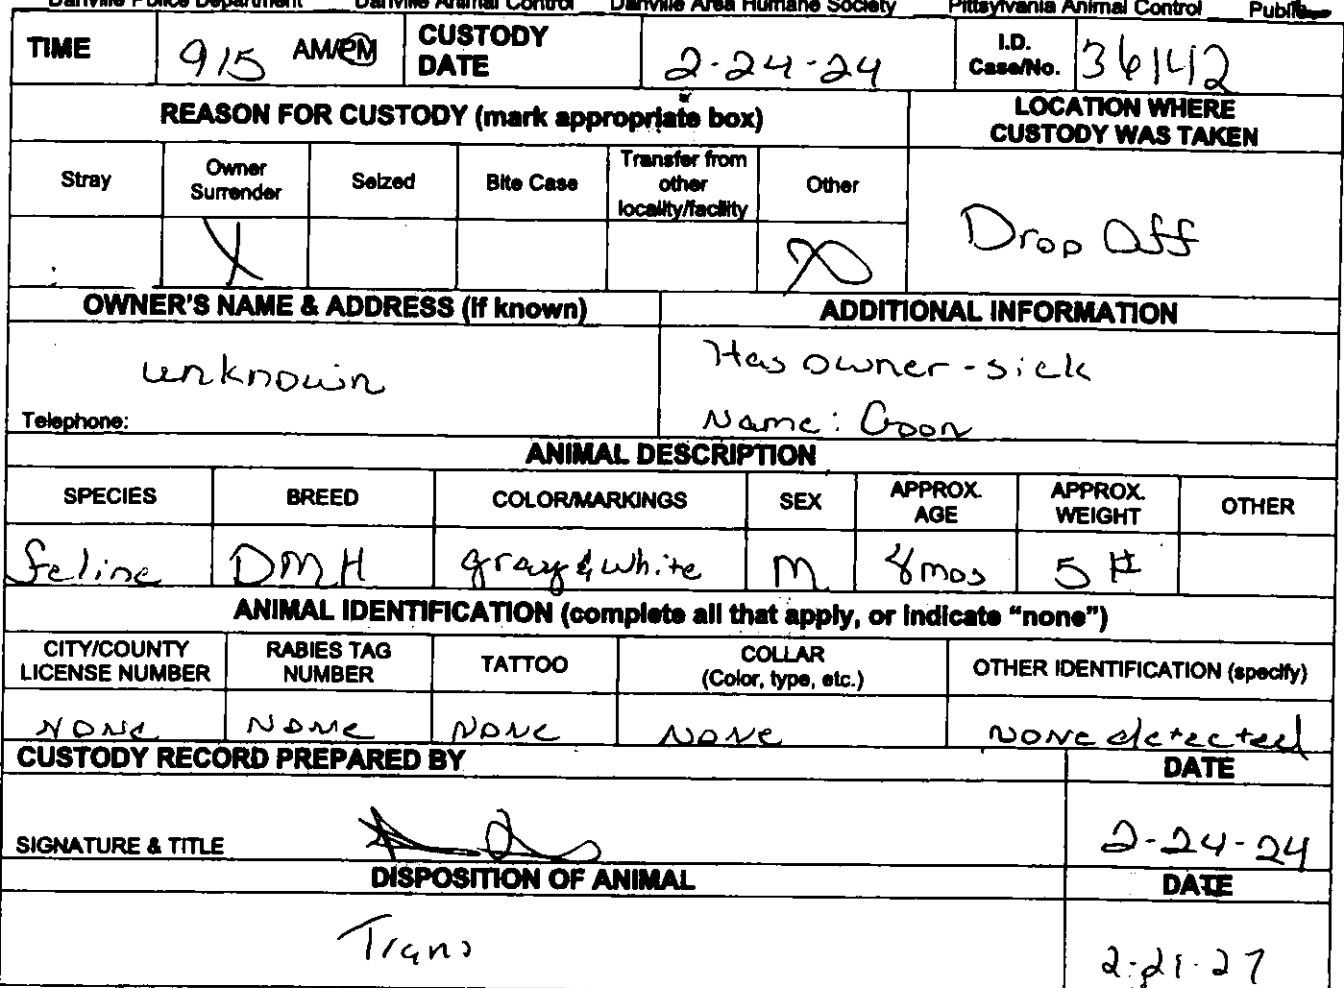 Danville Police Department Danville Animal Control Danville Area Humane Society Pittsylvania Animal Control Public
TIME 915 AM/PM CUSTODY DATE 2-24-24 I.D. Case/No. 36142
REASON FOR CUSTODY (mark appropriate box) LOCATION WHERE CUSTODY WAS TAKEN
Stray Owner Surrender Seized Bite Case Transfer from other locality/facility Other
X X Drop Off
OWNER'S NAME & ADDRESS (if known) ADDITIONAL INFORMATION
unknown Has owner - sick
Telephone: Name: Goon
ANIMAL DESCRIPTION
SPECIES BREED COLOR/MARKINGS SEX APPROX. AGE APPROX. WEIGHT OTHER
feline DMH gray & white M 8 mos 5 #
ANIMAL IDENTIFICATION (complete all that apply, or indicate "none")
CITY/COUNTY LICENSE NUMBER RABIES TAG NUMBER TATTOO COLLAR (Color, type, etc.) OTHER IDENTIFICATION (specify)
NONE NONE NONE NONE NONE detected
CUSTODY RECORD PREPARED BY DATE
SIGNATURE & TITLE 2-24-24
DISPOSITION OF ANIMAL DATE
Trans 2-21-27